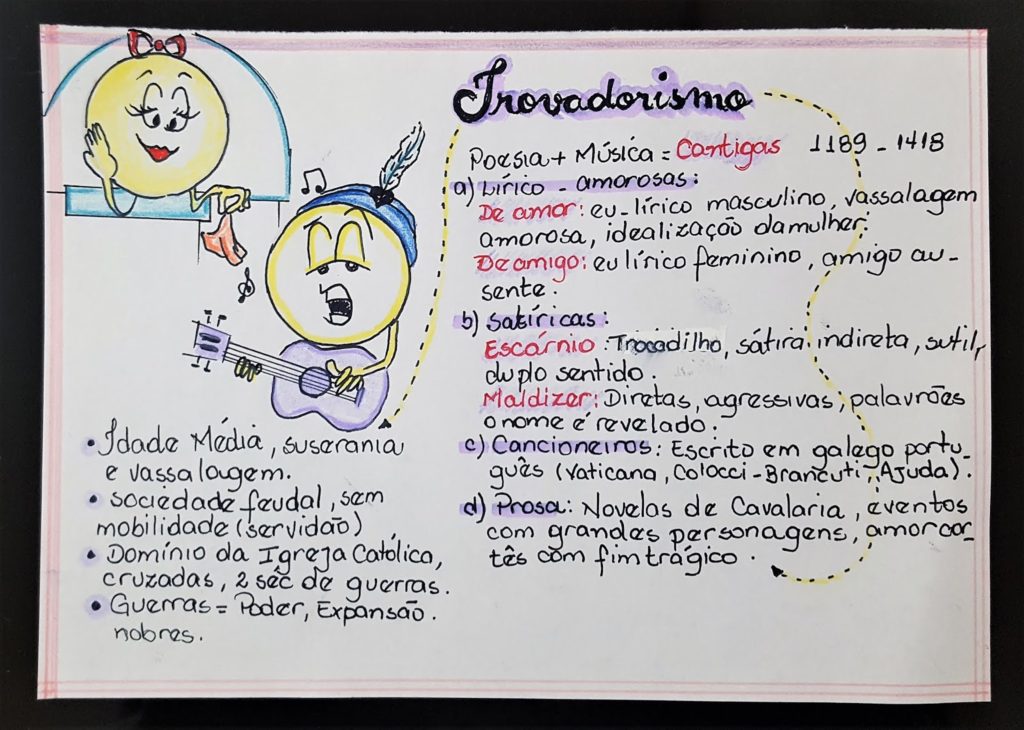 Trovadorismo
Poesia + Música = Cantigas 1189 - 1418
a) Lírico - amorosas:
De amor: eu-lírico masculino, vassalagem
amorosa, idealização da mulher.
De amigo: eu lírico feminino, amigo au-
sente.
b) Satíricas:
Escárnio: Trocadilho, sátira indireta, sutil,
duplo sentido.
Maldizer: Diretas, agressivas, palavrões
o nome é revelado.
c) Cancioneiros: Escrito em galego portu-
guês (Vaticana, Colocci-Brancuti, Ajuda).
d) Prosa: Novelas de Cavalaria, eventos
com grandes personagens, amor cor-
tês com fim trágico.
• Idade Média, suserania
e vassalagem.
• sociedade feudal, sem
mobilidade (servidão)
• Domínio da Igreja Católica,
cruzadas, 2 séc de guerras.
• Guerras = Poder, Expansão.
nobres.